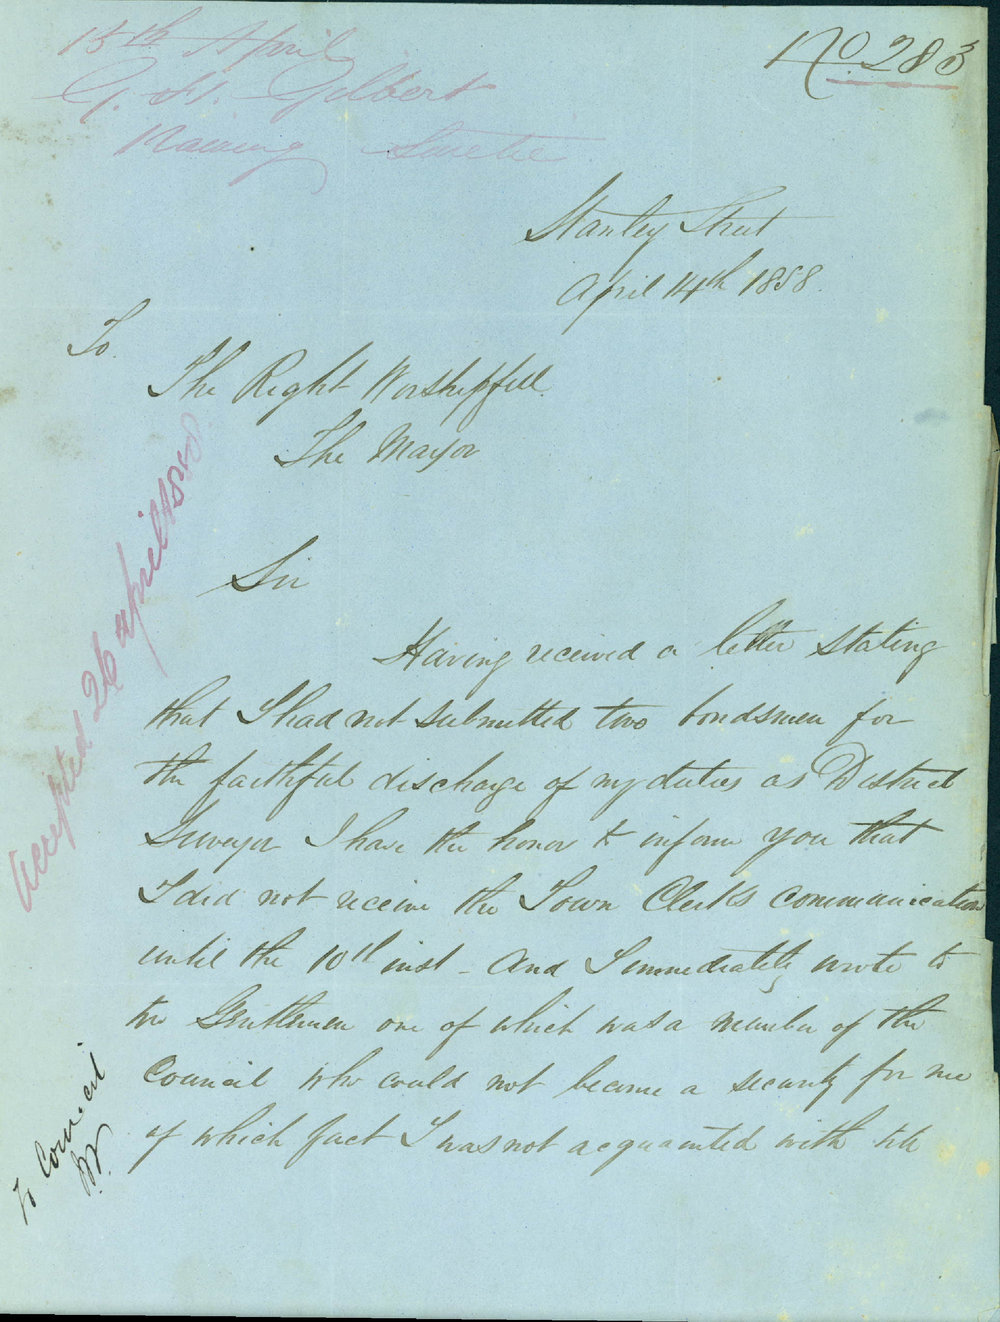 15th April
G. H. Gilbert
Naming Sureties
No 283
Stanley Street
April 14th 1858.
To
The Right Worshipfull
The Mayor
Sir
Having received a letter stating
that I had not submitted two bondsmen for
the faithful discharge of my duties as District
Surveyor I have the honor to inform you that
I did not receive the Town Clerks communication
until the 10th inst - And I immediately wrote to
two Gentlemen one of which was a member of the
Council who could not become a security for me
of which fact I was not acquainted with till
Accepted 26 April 1858
To Council